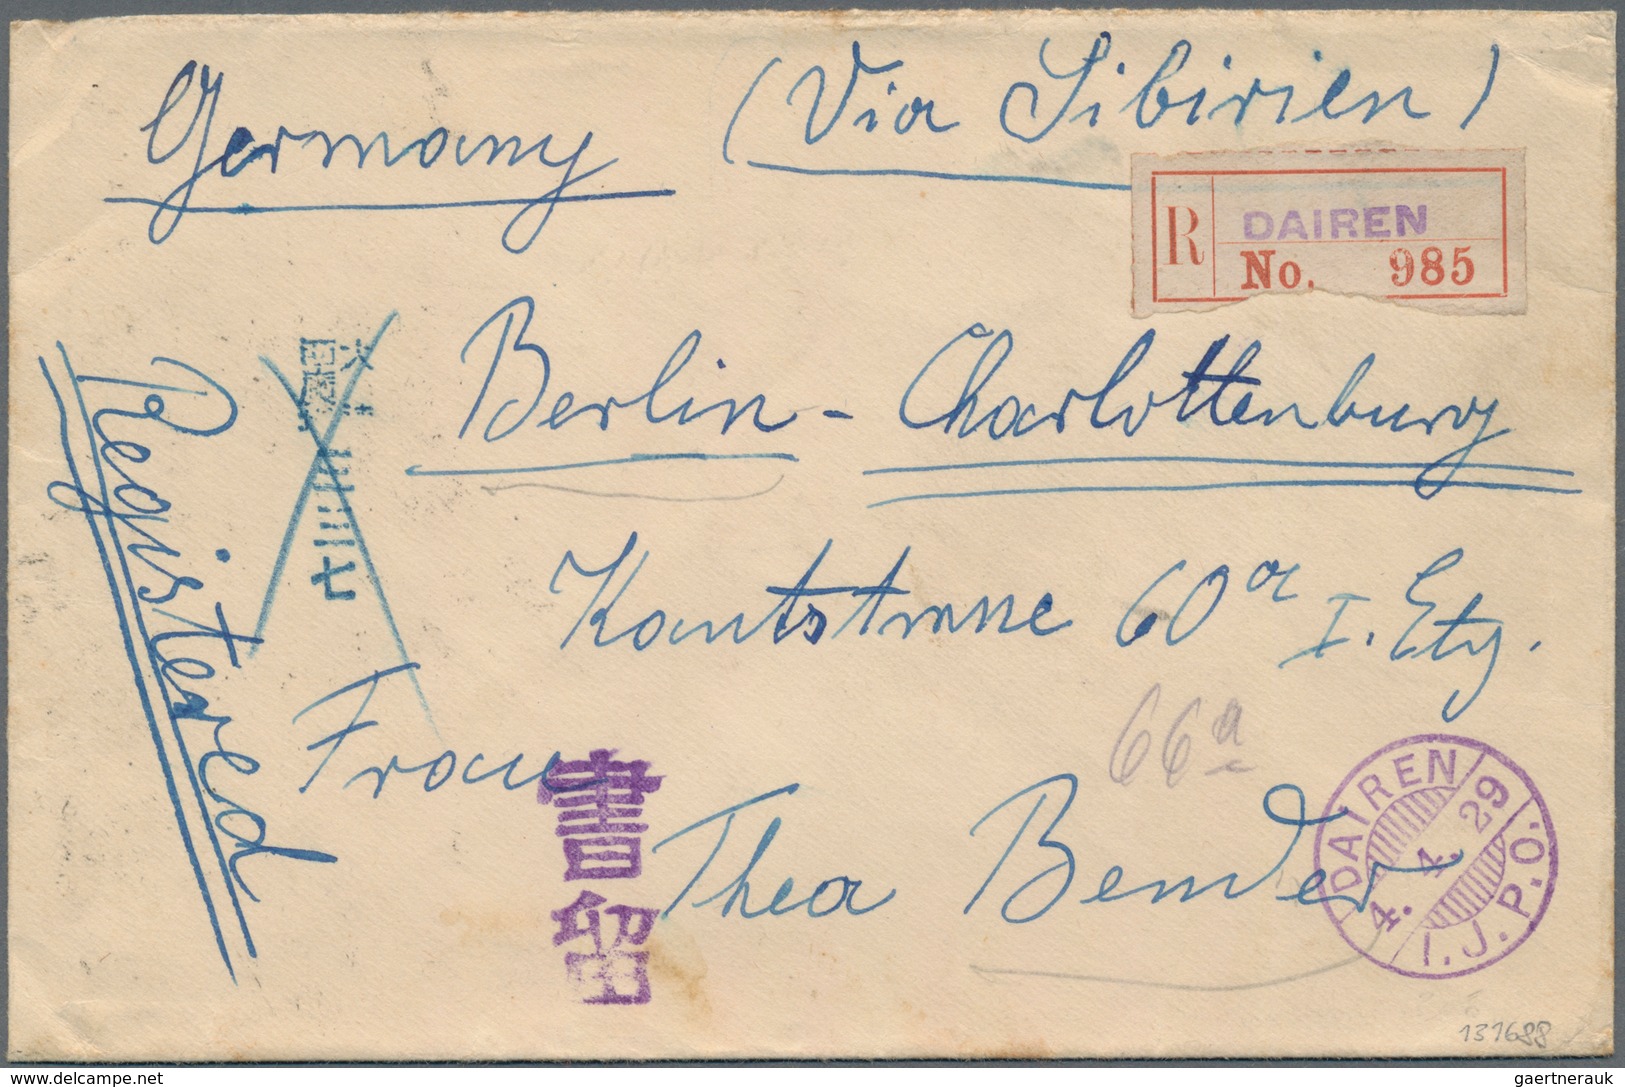 Germany (Via Sibirien)
R DAIREN
No. 985
Berlin - Charlottenburg
Kantstrasse 60a I. Etg.
66a
Frau
Thea Bender
Registered
七
書留
DAIREN
4. 4. 29
I.J.P.O.
131688
delcampe.net
gaertnerauk